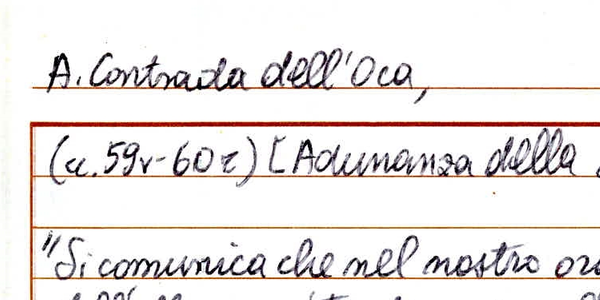 A. Contrada dell'Oca,
(cc. 59v-60r) [Adunanza della
"Si comunica che nel nostro